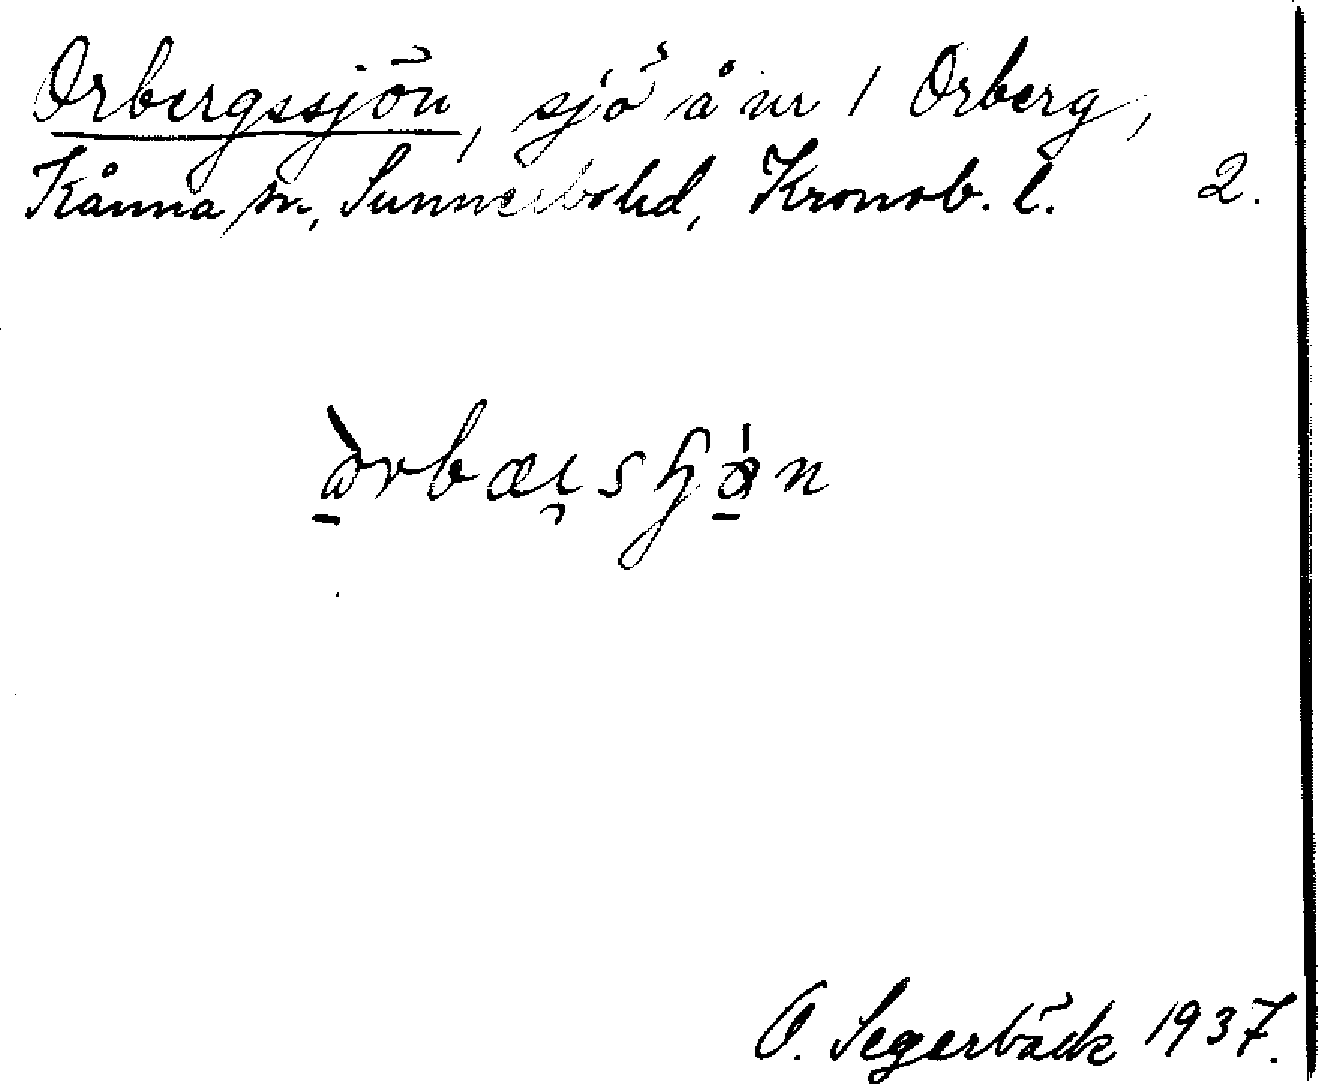 Orbergssjön, sjö å nr 1 Orberg,
Kånna sn, Sunnerbo hd, Kronob. l. 2.
O. Segerbäck 1937.